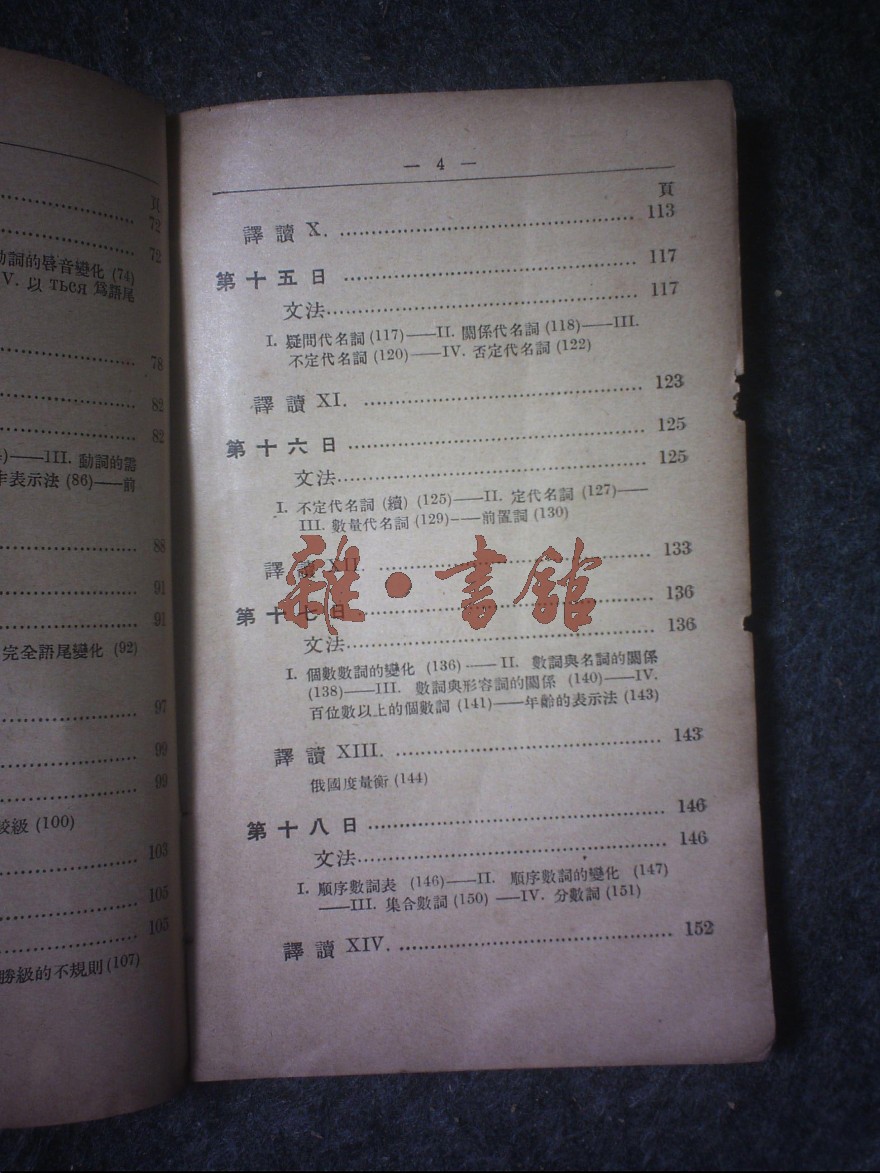 頁
72
72
動詞的唇音變化 (74)
V. 以 ться 爲語尾
78
82
82
)——III. 動詞的需
作表示法 (86)——前
88
91
91
完全語尾變化 (92)
97
99
99
較級 (100)
103
105
105
勝級的不規則 (107)
— 4 —
頁
譯 讀 X. 113
第 十 五 日 117
文法 117
I. 疑問代名詞 (117)——II. 關係代名詞 (118)——III.
不定代名詞 (120)——IV. 否定代名詞 (122)
譯 讀 XI. 123
第 十 六 日 125
文法 125
I. 不定代名詞 (續) (125)——II. 定代名詞 (127)——
III. 數量代名詞 (129)——前置詞 (130)
譯 讀 XII 133
雜·書館
第 十 七 日 136
文法 136
I. 個數數詞的變化 (136)——II. 數詞與名詞的關係
(138)——III. 數詞與形容詞的關係 (140)——IV.
百位數以上的個數詞 (141)——年齡的表示法 (143)
譯 讀 XIII. 143
俄國度量衡 (144)
第 十 八 日 146
文法 146
I. 順序數詞表 (146)——II. 順序數詞的變化 (147)
——III. 集合數詞 (150)——IV. 分數詞 (151)
譯 讀 XIV. 152